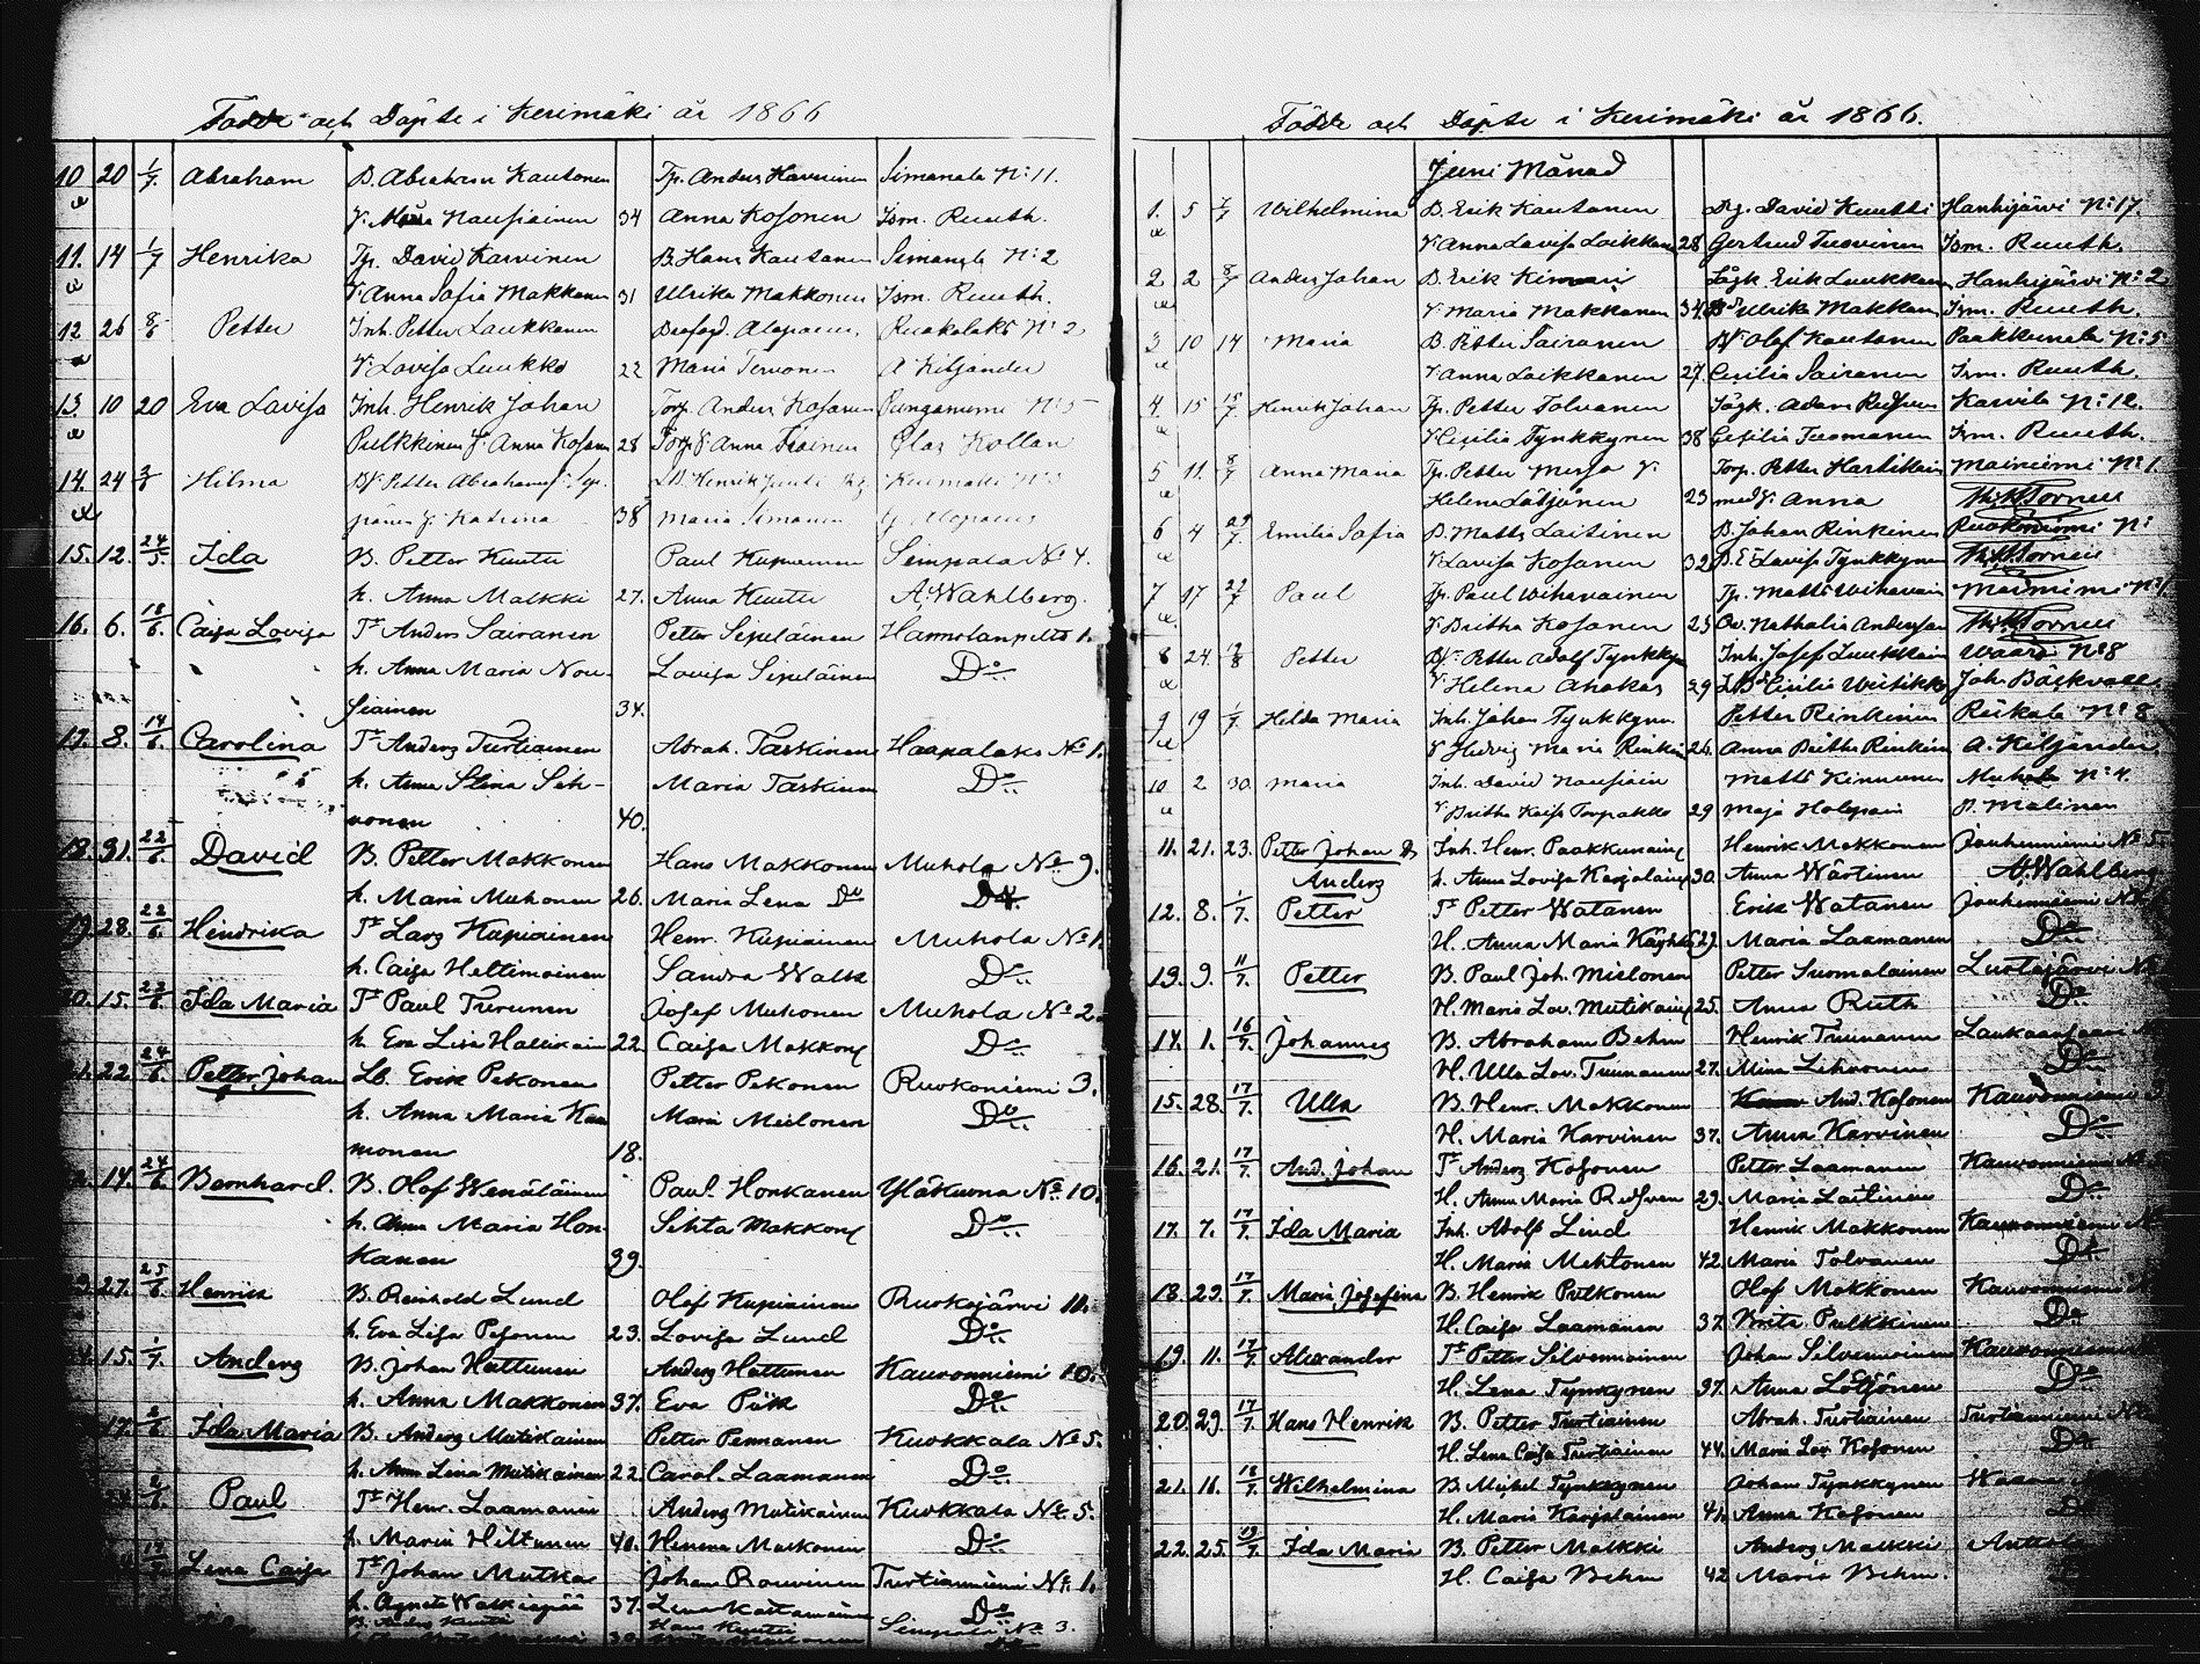 Födde och Döpte i Kerimäki år 1866
10 20 1/7 Abraham B. Abraham Kautonen Tp. Anders Karvinen Simanala No: 11.
V. Nousiainen 34 Anna Kosonen Ism. Ruuth.
11. 14 1/7 Henrika Tp. David Karvinen B. Hans Kautonen Simanala No: 2
V. Anna Sofia Makkonen 31 Ulrika Makkonen Ism. Ruuth.
12 26 Petter Inh. Petter Laukkanen Alopaeus, Ruokolaks No: 2
V. Lovisa Luukko 22 Maria Tervonen A Kiljander
13. 10 20 Eva Lovisa Inh. Henrik Johan Torp. Anders Kosonen Punganiemi No: 5
Pulkkinen V. Anna Kosonen 28 Torp V. Anna Olas Kollan
14. 24 Hilma Petter Abrahamss. Henrik
V. Katrina 38 Maria Simanen Alopaeus
15. 12. 24/5. Ida B. Petter Kuutti Paul Kupiainen Simpala No 4.
h. Anna Malkki 27. Anna Kuutti A. Wahlberg.
16. 6. 18/6. Caisa Lovisa Tr Anders Sairanen Petter Sipeläinen Hannolanpelto 1.
h. Anna Maria Nou- Lovisa Sipeläinen Do
siainen 34.
17. 8. 14/6. Carolina Tr Anders Turtiainen Abrah. Taskinen Haapalaks No 1.
h. Anna Stina Sih- Maria Taskinen Do
vonen 40.
18. 31. 22/6. David B. Petter Makkonen Hans Makkonen Muhola No 9.
h. Maria Muhonen 26. Maria Lena Do Do
19. 28. 22/6. Hindrika Tr Lars Kupiainen Henr. Kupiainen Muhola No 1.
h. Caisa Heltimoinen Sandra Walk Do
20. 15. 22/6. Ida Maria Tr Paul Turunen Josef Muhonen Muhola No 2.
h. Eva Lisa Hallikain 22. Caisa Makkon Do
22. 24/6. Petter Johan Lb. Erik Pekonen Petter Pekonen Ruokoniemi 3.
h. Anna Maria Kau Maria Mielonen Do
monen 18.
14. 24/6. Bernhard. B. Olof Wenäläinen Paul Honkanen Yläkuona No 10.
h. Anna Maria Hon- Sihta Makkon Do
kanen 39.
27. 25/6. Henrik B. Reinhold Lund Olof Kupiainen Ruokojärvi 11.
h. Eva Lisa Pesonen 23. Lovisa Lund Do
15. 1/7. Anders B. Johan Hattunen Anders Hattunen Kauvonniemi 10.
h. Anna Makkonen 37. Eva Piik Do
17. Ida Maria B. Anders Mutikainen Petter Pennanen Kuokkala No 5.
h. Anna Lena Mutikainen 22. Carol. Laamanen Do
Paul Tr Henr. Laamanen Anders Mutikainen Kuokkala No 5.
h. Maria Hiltunen 40. Helena Makkonen Do
Lena Caisa Tr Johan Mutka Johan Rouvinen Turtianniemi No 1.
h. Agneta Walkiapää 37. Lena Do
B. Anders Kuutti Hans Kuutti Simpala No 3.
Födde och Döpte i Kerimäki år 1866.
Juni Månad
1. 5 1/7 Wilhelmina B. Erik Kautonen Dg. David Kuutti Hanhijärvi No: 17.
V. Anna Lovisa Loikkanen 28 Gertrud Tuovinen Ism. Ruuth.
2 2 8/7 Anders Johan B. Erik Kinnari Lågk. Erik Luukkonen Hanhijärvi No: 2
V. Maria Makkonen 34 Ulrika Makkonen Ism. Ruuth.
3 10 14 Maria B. Petter Sairanen Olof Kautonen Paakkunala No: 5
V. Anna Loikkanen 27. Cecilia Sairanen Ism. Ruuth.
4. 15 15/7 Henrik Johan Tp. Petter Tolvanen Lågk. Adam Karvila No: 12.
V. Cecilia Tynkkynen 38 Cecilia Tuomanen Ism. Ruuth.
5 11. 8/7 Anna Maria Tp. Petter Messo V. Torp. Petter Hartikain Mainiemi No: 1.
Helena Lötjönen 23 med V. Anna Torneus
6 4 29/7. Emilia Sofia B. Matts Laitinen B. Johan Rinkinen Ruokoniemi No:
V. Lovisa Kosonen 32 Lovisa Tynkkynen Torneus
7 17 22/7 Paul Tp. Paul Wihavainen Tp. Matts Wihavain Mainiemi No: 1
V. Britha Kosonen 23 Nathalia Andersson Torneus
8 24. Petter Petter Adolf Tynkkyn Inh. Josef Luukkain Waara No: 8
V. Helena Ahokas 29 Cecilia Joh. Bäckvall
9 19 1/7. Hilda Maria Inh. Johan Tynkkynen Petter Rinkinen Raikala No: 8
V. Hedvig Maria Rinkin 26. Anna Britha Rinkin A. Kiljander
10 2 30. Maria Inh. David Nousiain Matts Kinnunen Muhola No: 4.
V. Britha Kaisa Torpakko 29 Maja Holopain P. Malinen
11. 21. 23. Petter Johan & Inh. Henr. Paakkunain Henrik Makkonen Jouhenniemi No 5.
Anders h. Anna Lovisa Karjalain 30. Anna Wärtinen A. Wahlberg
12. 8. 1/7. Petter Tr Petter Watanen Erik Watanen Jouhenniemi No
H. Anna Maria Käyhkö 29. Maria Laamanen Do
13. 9. 11/7. Petter B. Paul Joh. Mielonen Petter Suomalainen Lustojärvi No
H. Maria Lov. Mutikain 25. Anna Ruth Do
14. 1. 16/7. Johannes B. Abraham Behm Henrik Tuunanen Laukaansaari
H. Ulla Lov. Tuunanen 27. Mina Lihvonen Do
15. 28. 17/7. Ulla B. Henr. Makkonen And. Kosonen Kauvonniemi
H. Maria Karvinen 37. Anna Karvinen Do
16. 21. 17/7. And. Johan Tr Anders Kosonen Petter Laamanen Kauvonniemi No
H. Anna Maria Redsven 29. Maria Laitinen Do
17. 7. 17/7. Ida Maria Inh. Adolf Lind Henrik Makkonen Kauvonniemi No
H. Maria Mehtonen 42. Maria Tolvanen Do
18. 29. 17/7. Maria Josefina B. Henrik Pulkonen Olof Makkonen Kauvonniemi
H. Caisa Laamanen 37. Brita Pulkkinen Do
19. 11. 17/7. Alexander Tr Petter Silvennoinen Johan Silvennoinen Kauvonniemi
H. Lena Tynkkynen 37. Anna Lötjönen Do
20. 29. 17/7. Hans Henrik B. Petter Turtiainen Abrah. Turtiainen Turtianniemi No
H. Lena Caisa Turtiainen 44. Maria Lov. Kosonen Do
21. 16. 18/7. Wilhelmina B. Michel Tynkkynen Johan Tynkkynen Waara
H. Maria Karjalainen 41. Anna Kosonen Do
22. 25. 19/7. Ida Maria B. Petter Malkki Anders Malkki Anttola
H. Caisa Behm 42 Maria Behm.